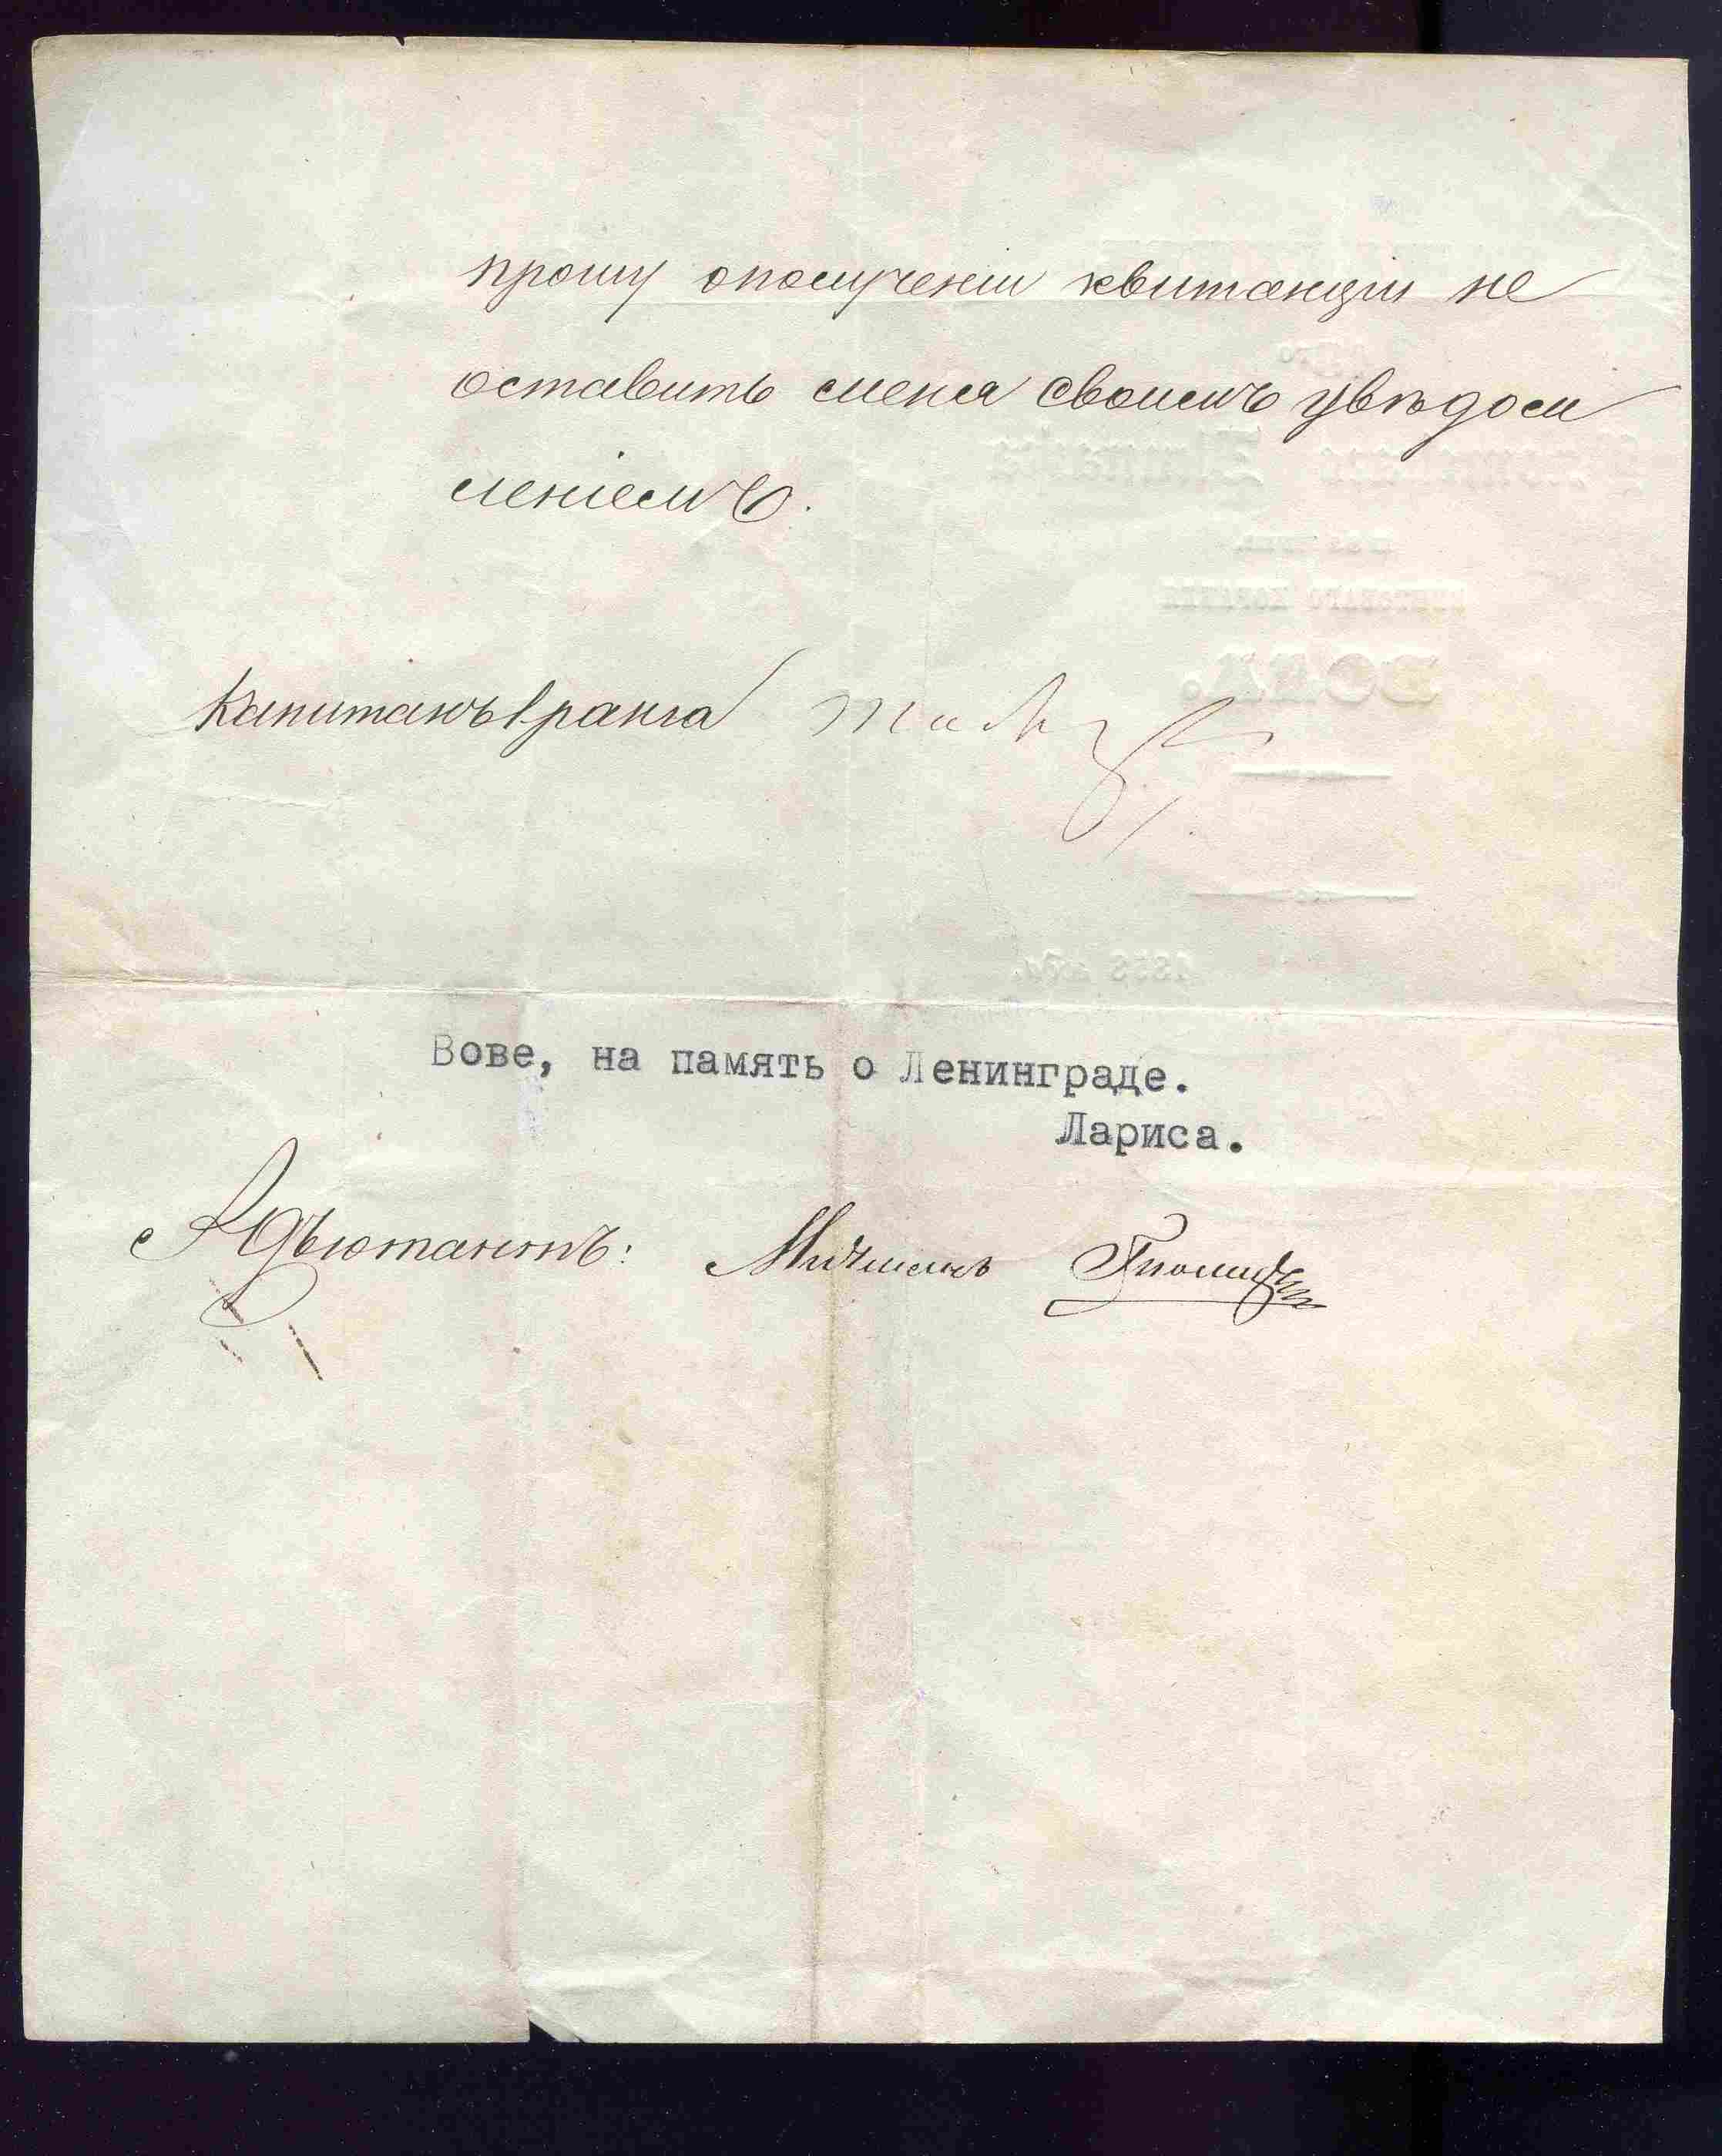 прошу ополученіи квитанціи не
оставить меня своимъ увѣдом
леніемъ.
Капитанъ 1 ранга
Вове, на память о Ленинграде.
Лариса.
Адъютантъ: Мичманъ